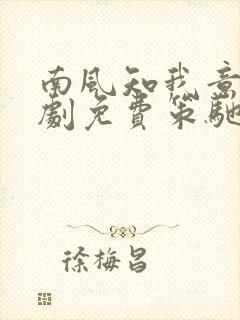 南風知我意
劇免費策馳
徐梅昌